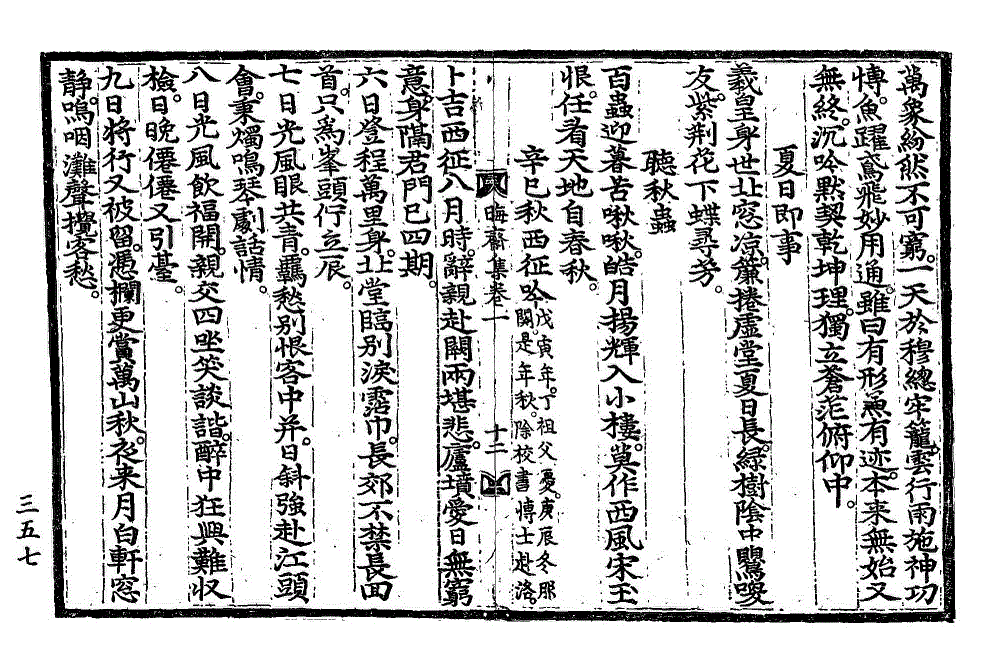 萬象紛然不可窮。一天於穆總牢籠。雲行雨施神功
愽。魚躍鳶飛妙用通。雖曰有形兼有迹。本来無始又
無終。沉吟默契乾坤理。獨立蒼茫俯仰中。
夏日即事
羲皇身世北窓凉。簾捲虚堂夏日長。綠樹陰中鸎嗄
友。紫荆花下蝶尋芳。
聽秋蟲
百蟲迎暮苦啾啾。皓月揚輝入小樓。莫作西風宋玉
恨。任看天地自春秋。
辛巳秋西征吟 戊寅年。丁祖父憂。庚辰冬。那
闋。是年秋。除校書愽士。赴洛。
晦齋集卷一
十二
卜吉西征八月時。辭親赴闕兩堪悲。廬墳愛日無窮
意。身隔君門已四期。
六日登程萬里身。北堂臨别淚霑巾。長郊不禁長回
首。只爲峯頭佇立辰。
七日光風眼共青。羈愁别恨客中并。日斜強赴江頭
會。秉燭鳴琴劇話情。
八日光風飲福開。親交四坐笑談諧。醉中狂興難収
檢。日晩僊僊又引臺。
九日将行又被留。憑攔更賞萬山秋。夜来月白軒窓
靜。嗚咽灘聲攪客愁。
三五七